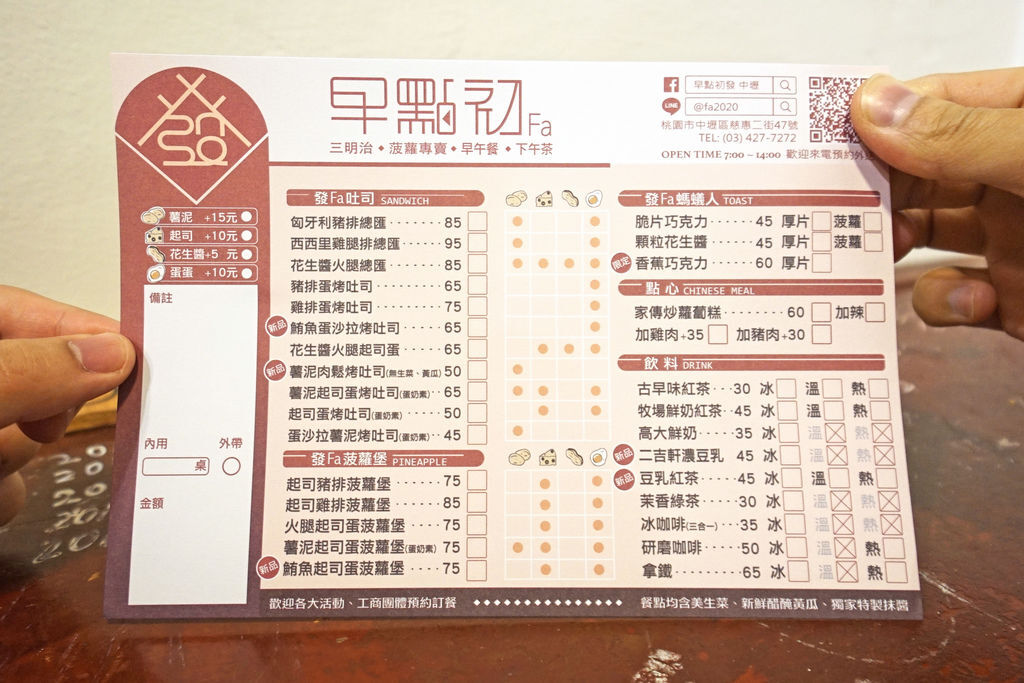 早點初Fa
三明治◆菠蘿專賣◆早午餐◆下午茶
早點初發 中壢
LINE @fa2020
桃園市中壢區慈惠二街47號
TEL: (03) 427-7272
OPEN TIME 7:00 ~ 14:00 歡迎來電預約外送
薯泥 +15元
起司 +10元
花生醬+5 元
蛋蛋 +10元
備註
內用 外帶
桌
金額
發Fa吐司 SANDWICH
匈牙利豬排總匯 85
西西里雞腿排總匯 95
花生醬火腿總匯 85
豬排蛋烤吐司 65
雞排蛋烤吐司 75
新品 鮪魚蛋沙拉烤吐司 65
花生醬火腿起司蛋 65
新品 薯泥肉鬆烤吐司(無生菜、黃瓜) 50
薯泥起司蛋烤吐司(蛋奶素) 65
起司蛋烤吐司(蛋奶素) 50
蛋沙拉薯泥烤吐司(蛋奶素) 45
發Fa菠蘿堡 PINEAPPLE
起司豬排菠蘿堡 75
起司雞排菠蘿堡 85
火腿起司蛋菠蘿堡 75
薯泥起司蛋菠蘿堡(蛋奶素) 75
新品 鮪魚起司蛋菠蘿堡 75
發Fa螞蟻人 TOAST
脆片巧克力 45 厚片 菠蘿
顆粒花生醬 45 厚片 菠蘿
限定 香蕉巧克力 60 厚片
點心 CHINESE MEAL
家傳炒蘿蔔糕 60 加辣
加雞肉+35 加豬肉+30
飲料 DRINK
古早味紅茶 30 冰 溫 熱
牧場鮮奶紅茶 45 冰 溫 熱
高大鮮奶 35 冰 溫 熱
新品 二吉軒濃豆乳 45 冰 溫 熱
新品 豆乳紅茶 45 冰 溫 熱
茉香綠茶 30 冰 溫 熱
冰咖啡(三合一) 35 冰 溫 熱
研磨咖啡 50 冰 溫 熱
拿鐵 65 冰 溫 熱
歡迎各大活動、工商團體預約訂餐
餐點均含美生菜、新鮮醋醃黃瓜、獨家特製抹醬